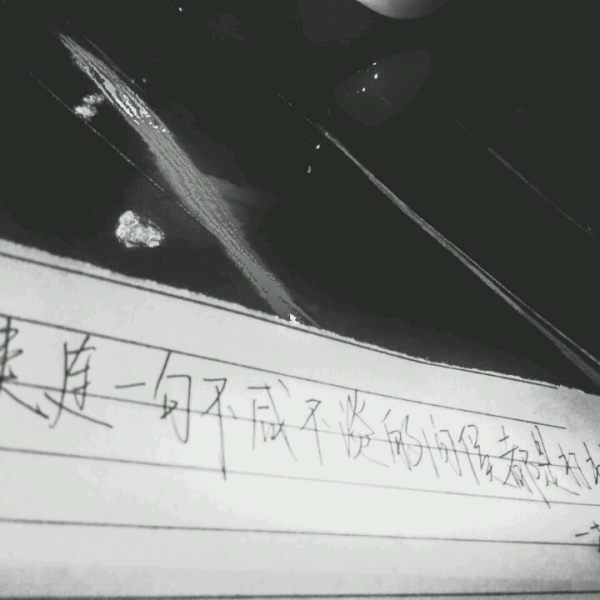 连一句不咸不淡的问候都是奢
一